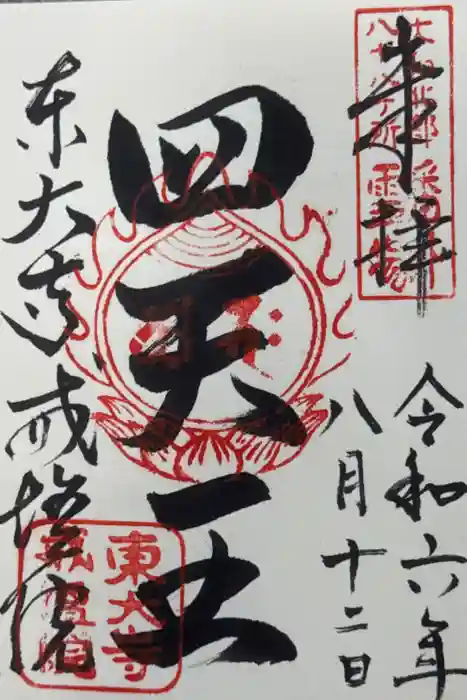 奉拝
令和六年
八月十二日
四天王
東大寺戒壇院
東大寺
戒壇院